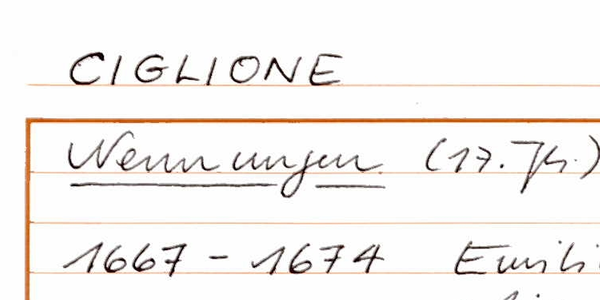 CIGLIONE
Nennungen (17. Jh.)
1667 - 1674 Emili